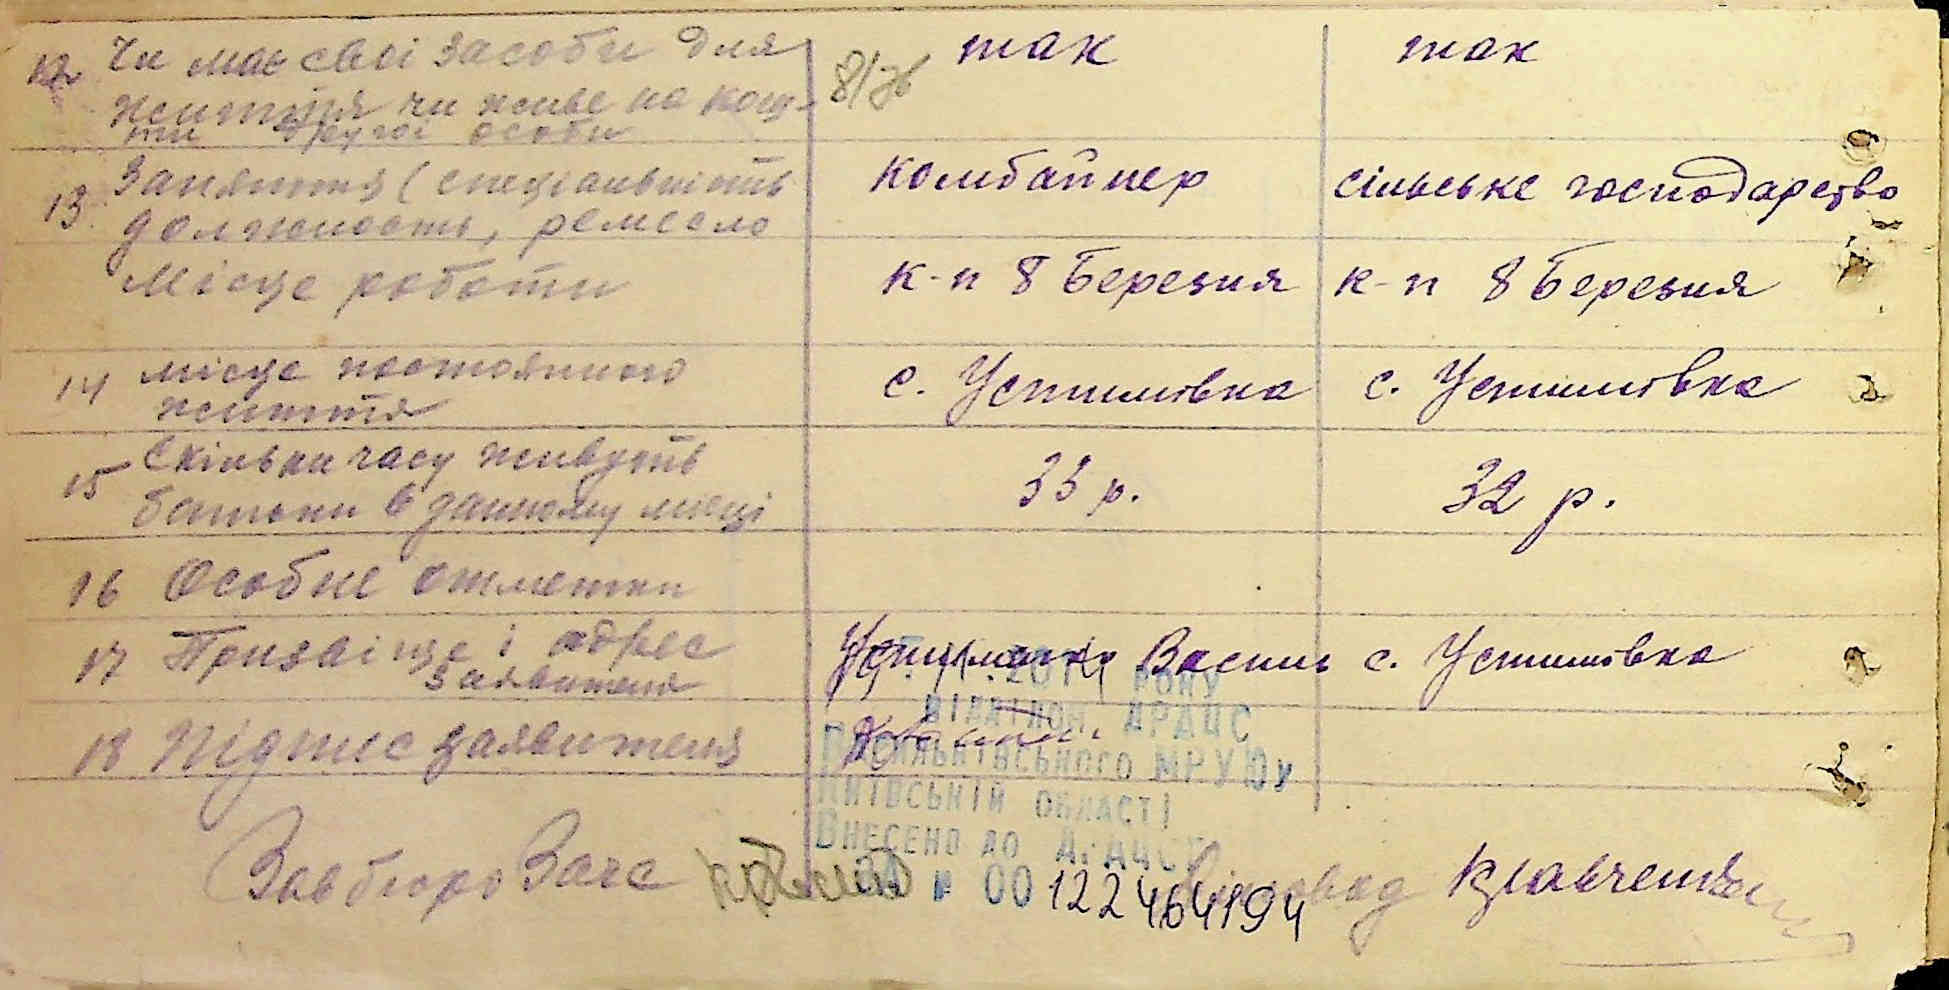 12 Чи має свої засоби для
життя чи живе на кош-
ти другої особи
так
так
13. Заняття (спеціальність
должность, ремесло
комбайнер
сільське господарство
Місце роботи
к-п 8 Березня
к-п 8 Березня
14 місце постоянного
життя
с. Устимовка
с. Устимовка
15 Скільки часу живуть
батьки в данному місці
33 р.
32 р.
16 Особие отметки
17 Призвіще і адрес
Заявителя
Василь с. Устимовка
18 Підпис заявителя
року
відділом ДРАЦС
Васильківського МРУЮ у
Київській області
Внесено до
№ 00122464194
Зав бюро Загс
Діловод Кравченко